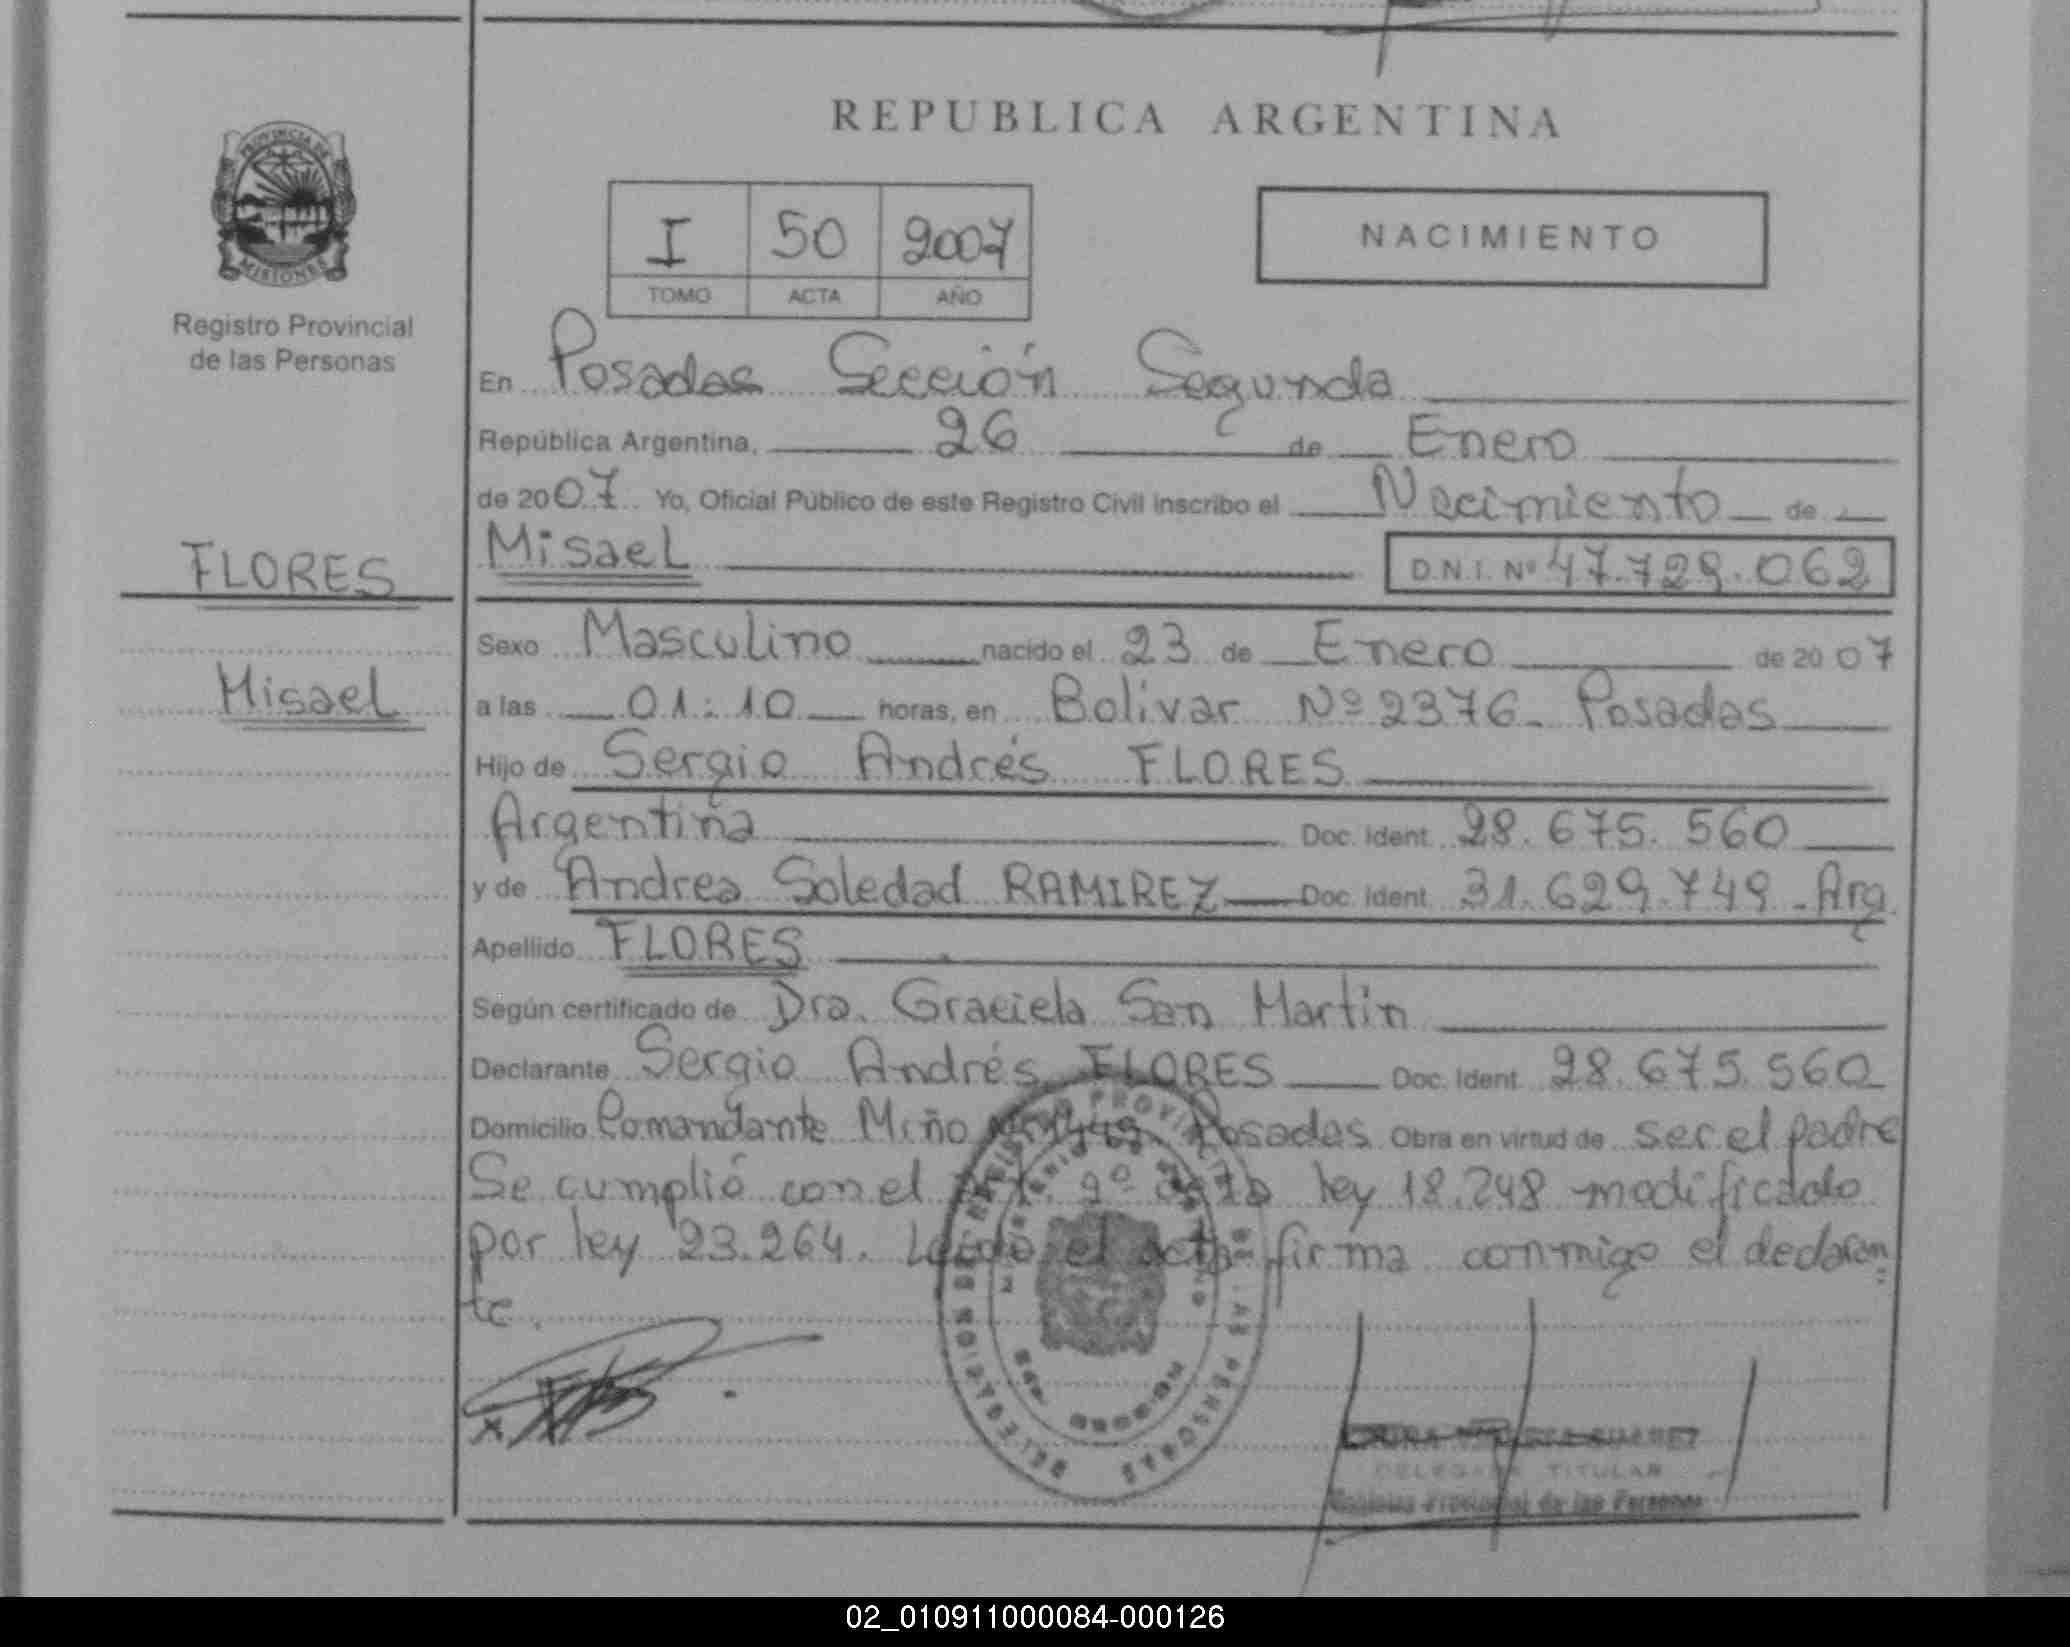 REPUBLICA ARGENTINA
PROVINCIA DE
MISIONES
Registro Provincial
de las Personas
I 50 2007
TOMO ACTA AÑO
NACIMIENTO
En Posadas Sección Segunda
República Argentina, 26 de Enero
de 2007 Yo, Oficial Público de este Registro Civil inscribo el Nacimiento de
FLORES
Misael
Misael D.N.I. Nº 47.729.062
Sexo Masculino nacido el 23 de Enero de 2007
a las 01:10 horas, en Bolivar Nº 2376 - Posadas
Hijo de Sergio Andrés FLORES
Argentina Doc. Ident. 28.675.560
y de Andrea Soledad RAMIREZ Doc. Ident. 31.629.749 - Arg
Apellido FLORES
Según certificado de Dra. Graciela San Martin
Declarante Sergio Andrés FLORES Doc. Ident. 28.675.560
Domicilio Comandante Miño Posadas Obra en virtud de ser el padre
Se cumplió con el 2º de la ley 18.248 modificado
por ley 23.264. Leída el acta firma conmigo el declaran
te.
REGISTRO PROVINCIAL DE LAS PERSONAS
DELEGADA TITULAR
Registro Provincial de las Personas
02_010911000084-000126